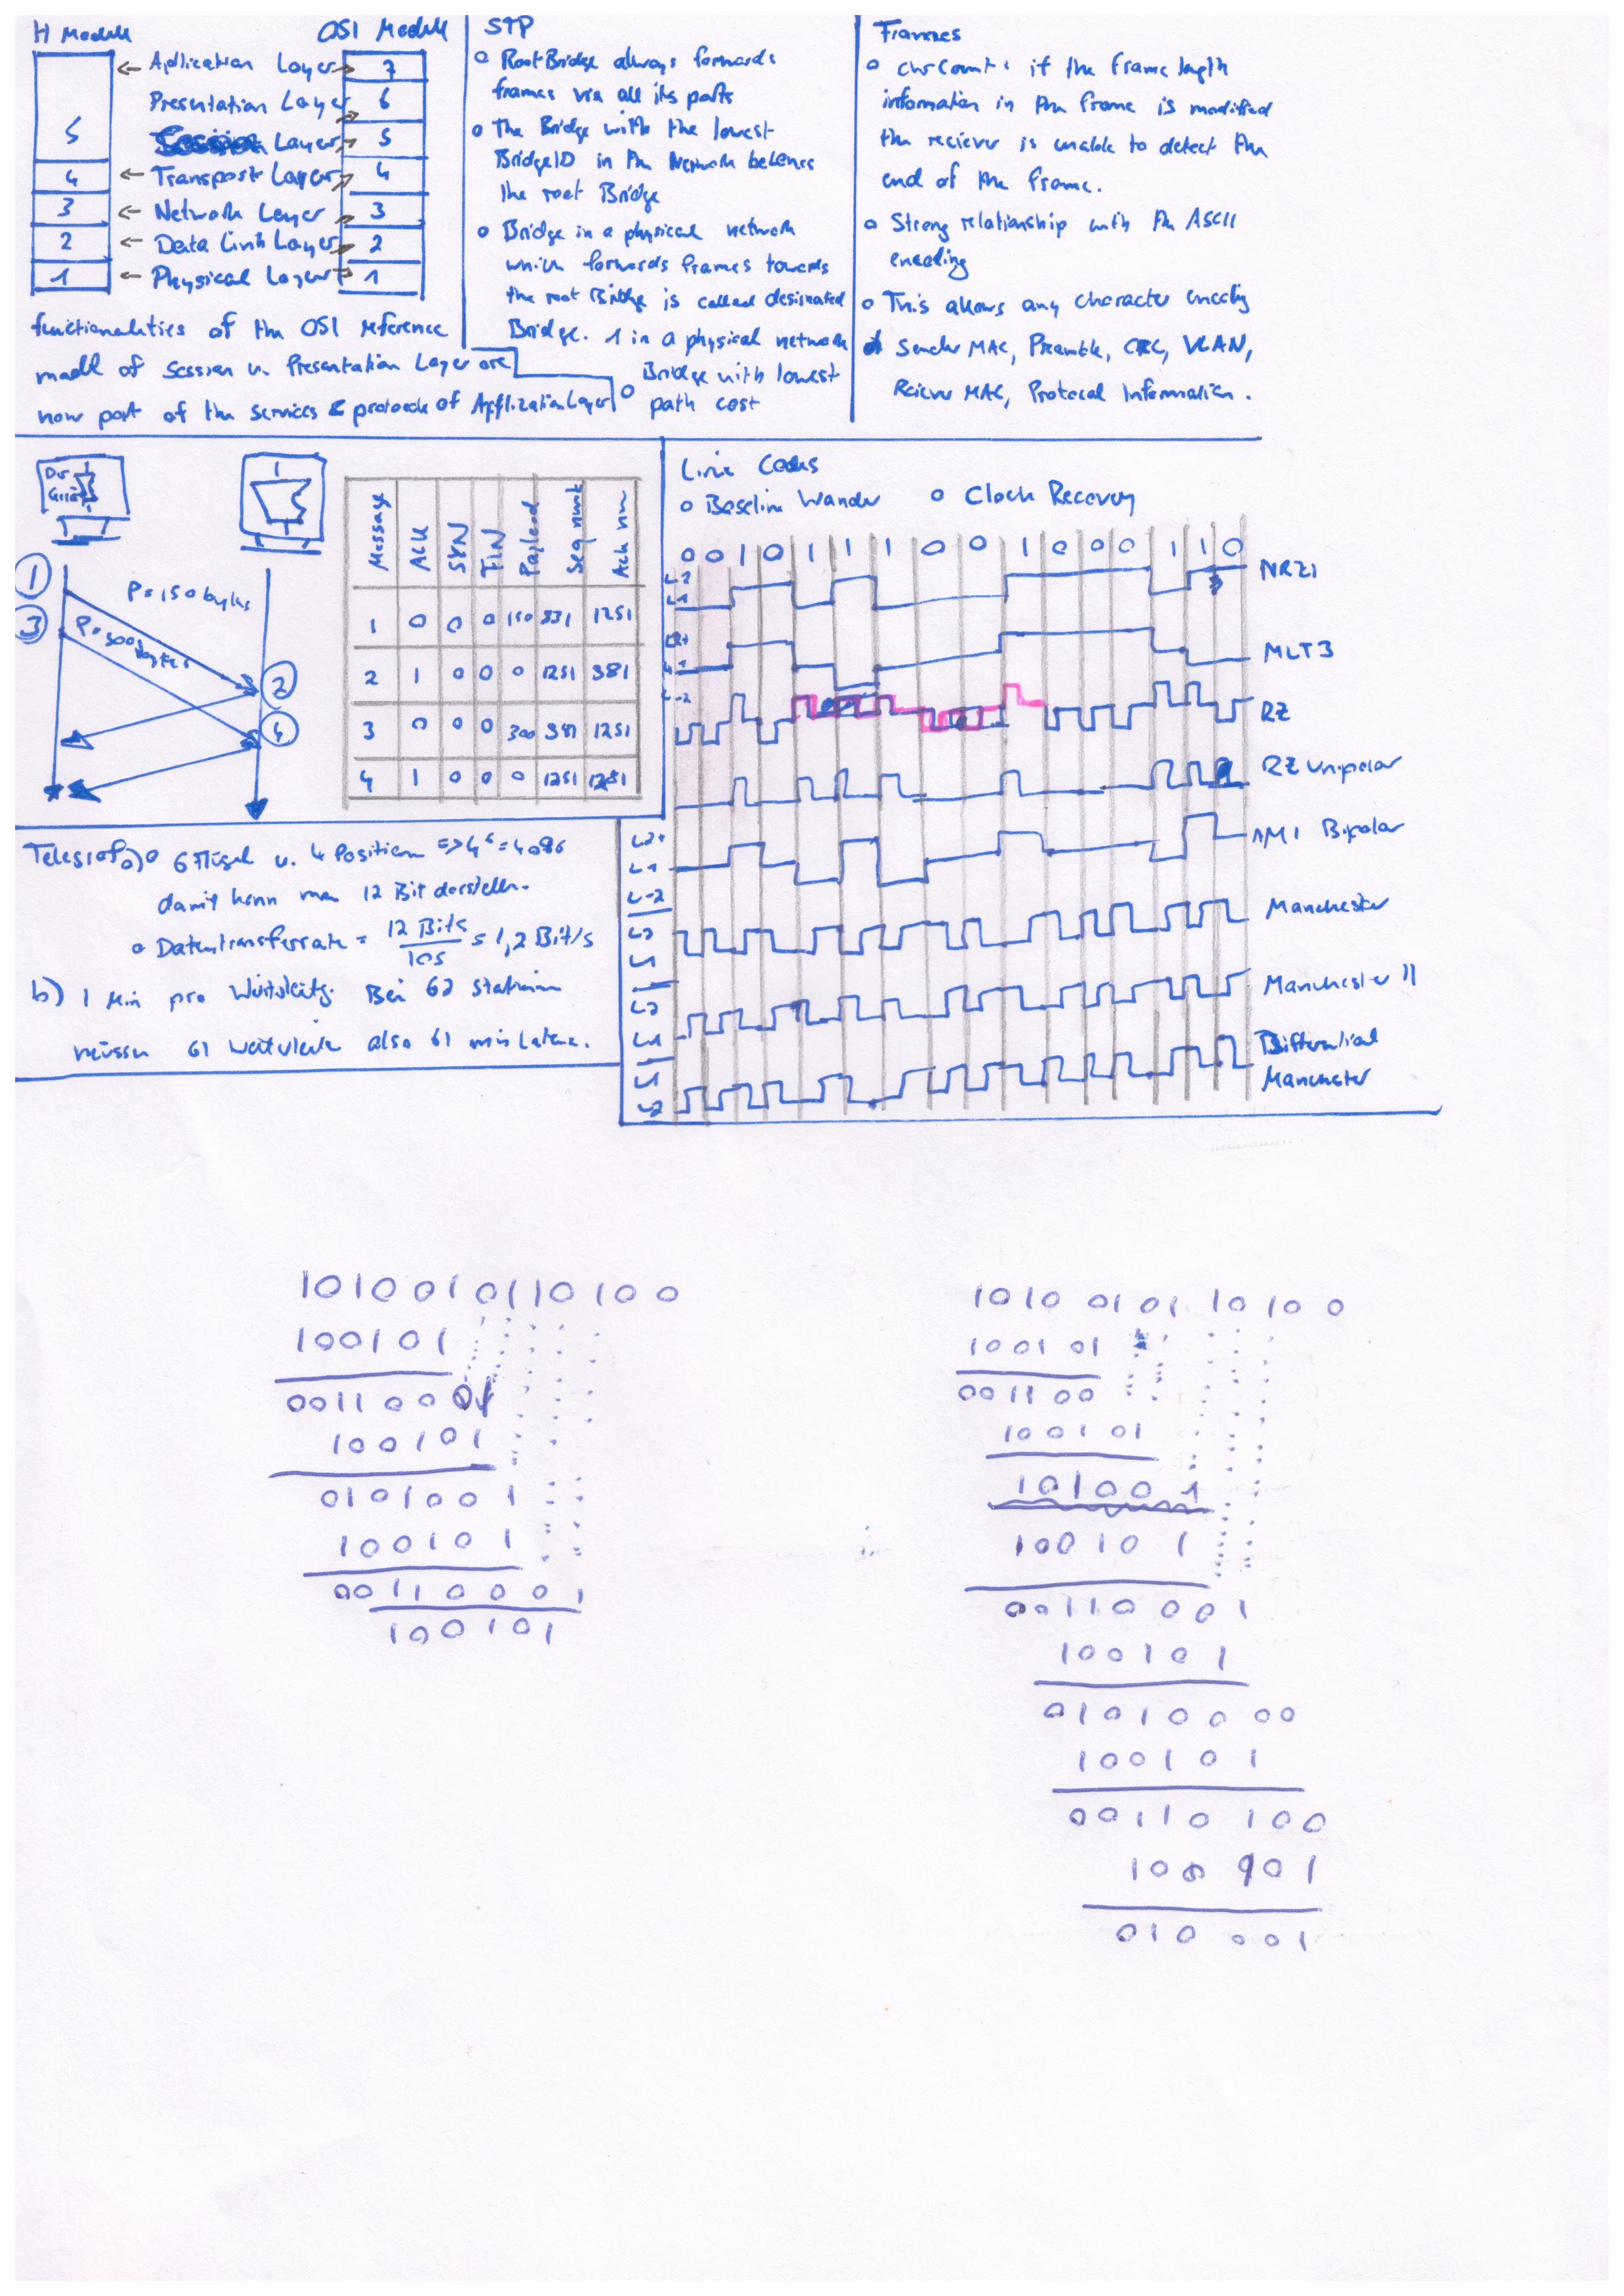 H Modell OSI Modell
← Apllication Layer → 7
Presentation Layer 6
5 Layer 5
4 ← Transport Layer 4
3 ← Network Layer 3
2 ← Data Link Layer 2
1 ← Physical Layer 1
functionalities of the OSI reference
modell of Session u. Presentation Layer are
now part of the services & protocols of Application Layer
STP
o Root Bridge always forwards
frames via all its ports
o The Bridge with the lowest
Bridge ID in the Network
the root Bridge
o Bridge in a physical network
which forwards frames towards
the root Bridge is called designated
Bridge. 1 in a physical network
o Bridge with lowest
path cost
Frames
o if the frame length
information in the frame is modified
the reciever is unable to detect the
end of the frame.
o Strong relationship with the ASCII
encoding
o This allows any character encoding
o Sender MAC, Preamble, CRC, VLAN,
Reciever MAC, Protocol Information.
1 P=150 bytes
3 P=300 bytes
2
4
Message ACK SYN FIN Payload Seq num Ack num
1 0 0 0 150 831 1251
2 1 0 0 0 1251 381
3 0 0 0 300 981 1251
4 1 0 0 0 1251 1281
Line Codes
o Baseline Wander o Clock Recovery
0 0 1 0 1 1 1 0 0 1 0 0 0 1 1 0
NRZI
MLT3
RZ
RZ Unipolar
AMI Bipolar
Manchester
Manchester II
Differential
Manchester
a) o 6 Flügel u. 4 Position => 4⁶ = 4096
damit kann man 12 Bit darstellen.
o Datentransferrate = 12 Bits / 10s = 1,2 Bit/s
b) 1 Min pro Bei 62 Stationen
müssen 61 also 61 min Latenz.
1010010110100
100101
0011000
100101
0101001
100101
00110001
100101
1010010110100
100101
001100
100101
101001
100101
00110001
100101
01010000
100101
00110100
100101
010001